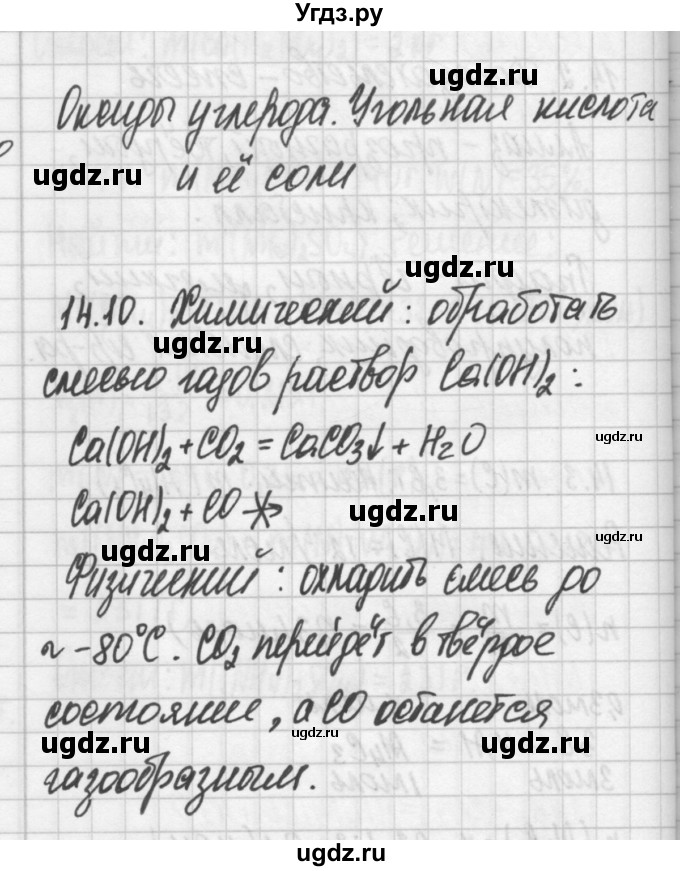 Угдз.ру
Оксиды углерода. Угольная кислота
и её соли
14.10. Химический: обработать
смесью газов раствор Ca(OH)₂:
Ca(OH)₂ + CO₂ = CaCO₃↓ + H₂O
Ca(OH)₂ + CO ↛
Физический: охладить смесь до
~ -80°C. CO₂ перейдёт в твёрдое
состояние, а CO останется
газообразным.
ugdz.ru
ugdz.ru
ugdz.ru
ugdz.ru
ugdz.ru
ugdz.ru
ugdz.ru
ugdz.ru
ugdz.ru
ugdz.ru
ugdz.ru
ugdz.ru
ugdz.ru